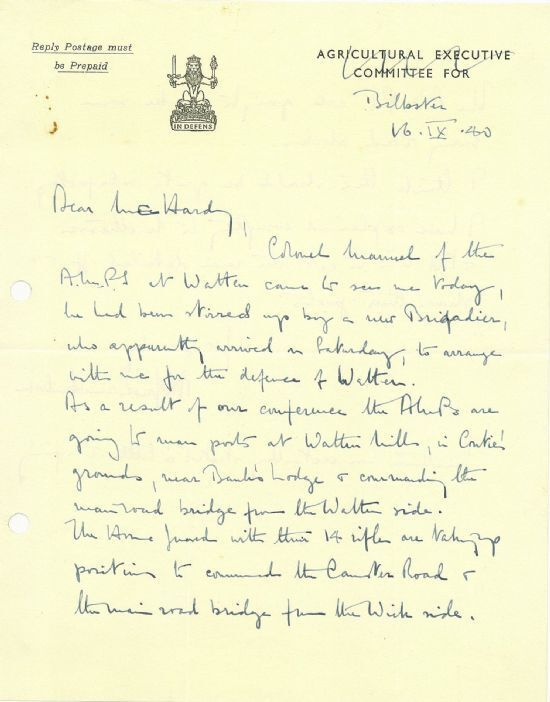 Reply Postage must
be Prepaid
IN DEFENS
AGRICULTURAL EXECUTIVE
COMMITTEE FOR
Bilbster
16.IX.40
Dear McHardy,
Colonel Manuel of the
A.M.P.S at Watten came to see me today,
he had been stirred up by a new Brigadier,
who apparently arrived on Saturday, to arrange
with me for the defence of Watten.
As a result of our conference the AMPS are
going to man posts at Watten Mills, in
grounds, near Banks Lodge & commanding the
main road bridge from the Watten side.
The Home Guard with their 14 rifles are taking up
positions to command the Camster Road &
the main road bridge from the Wick side.